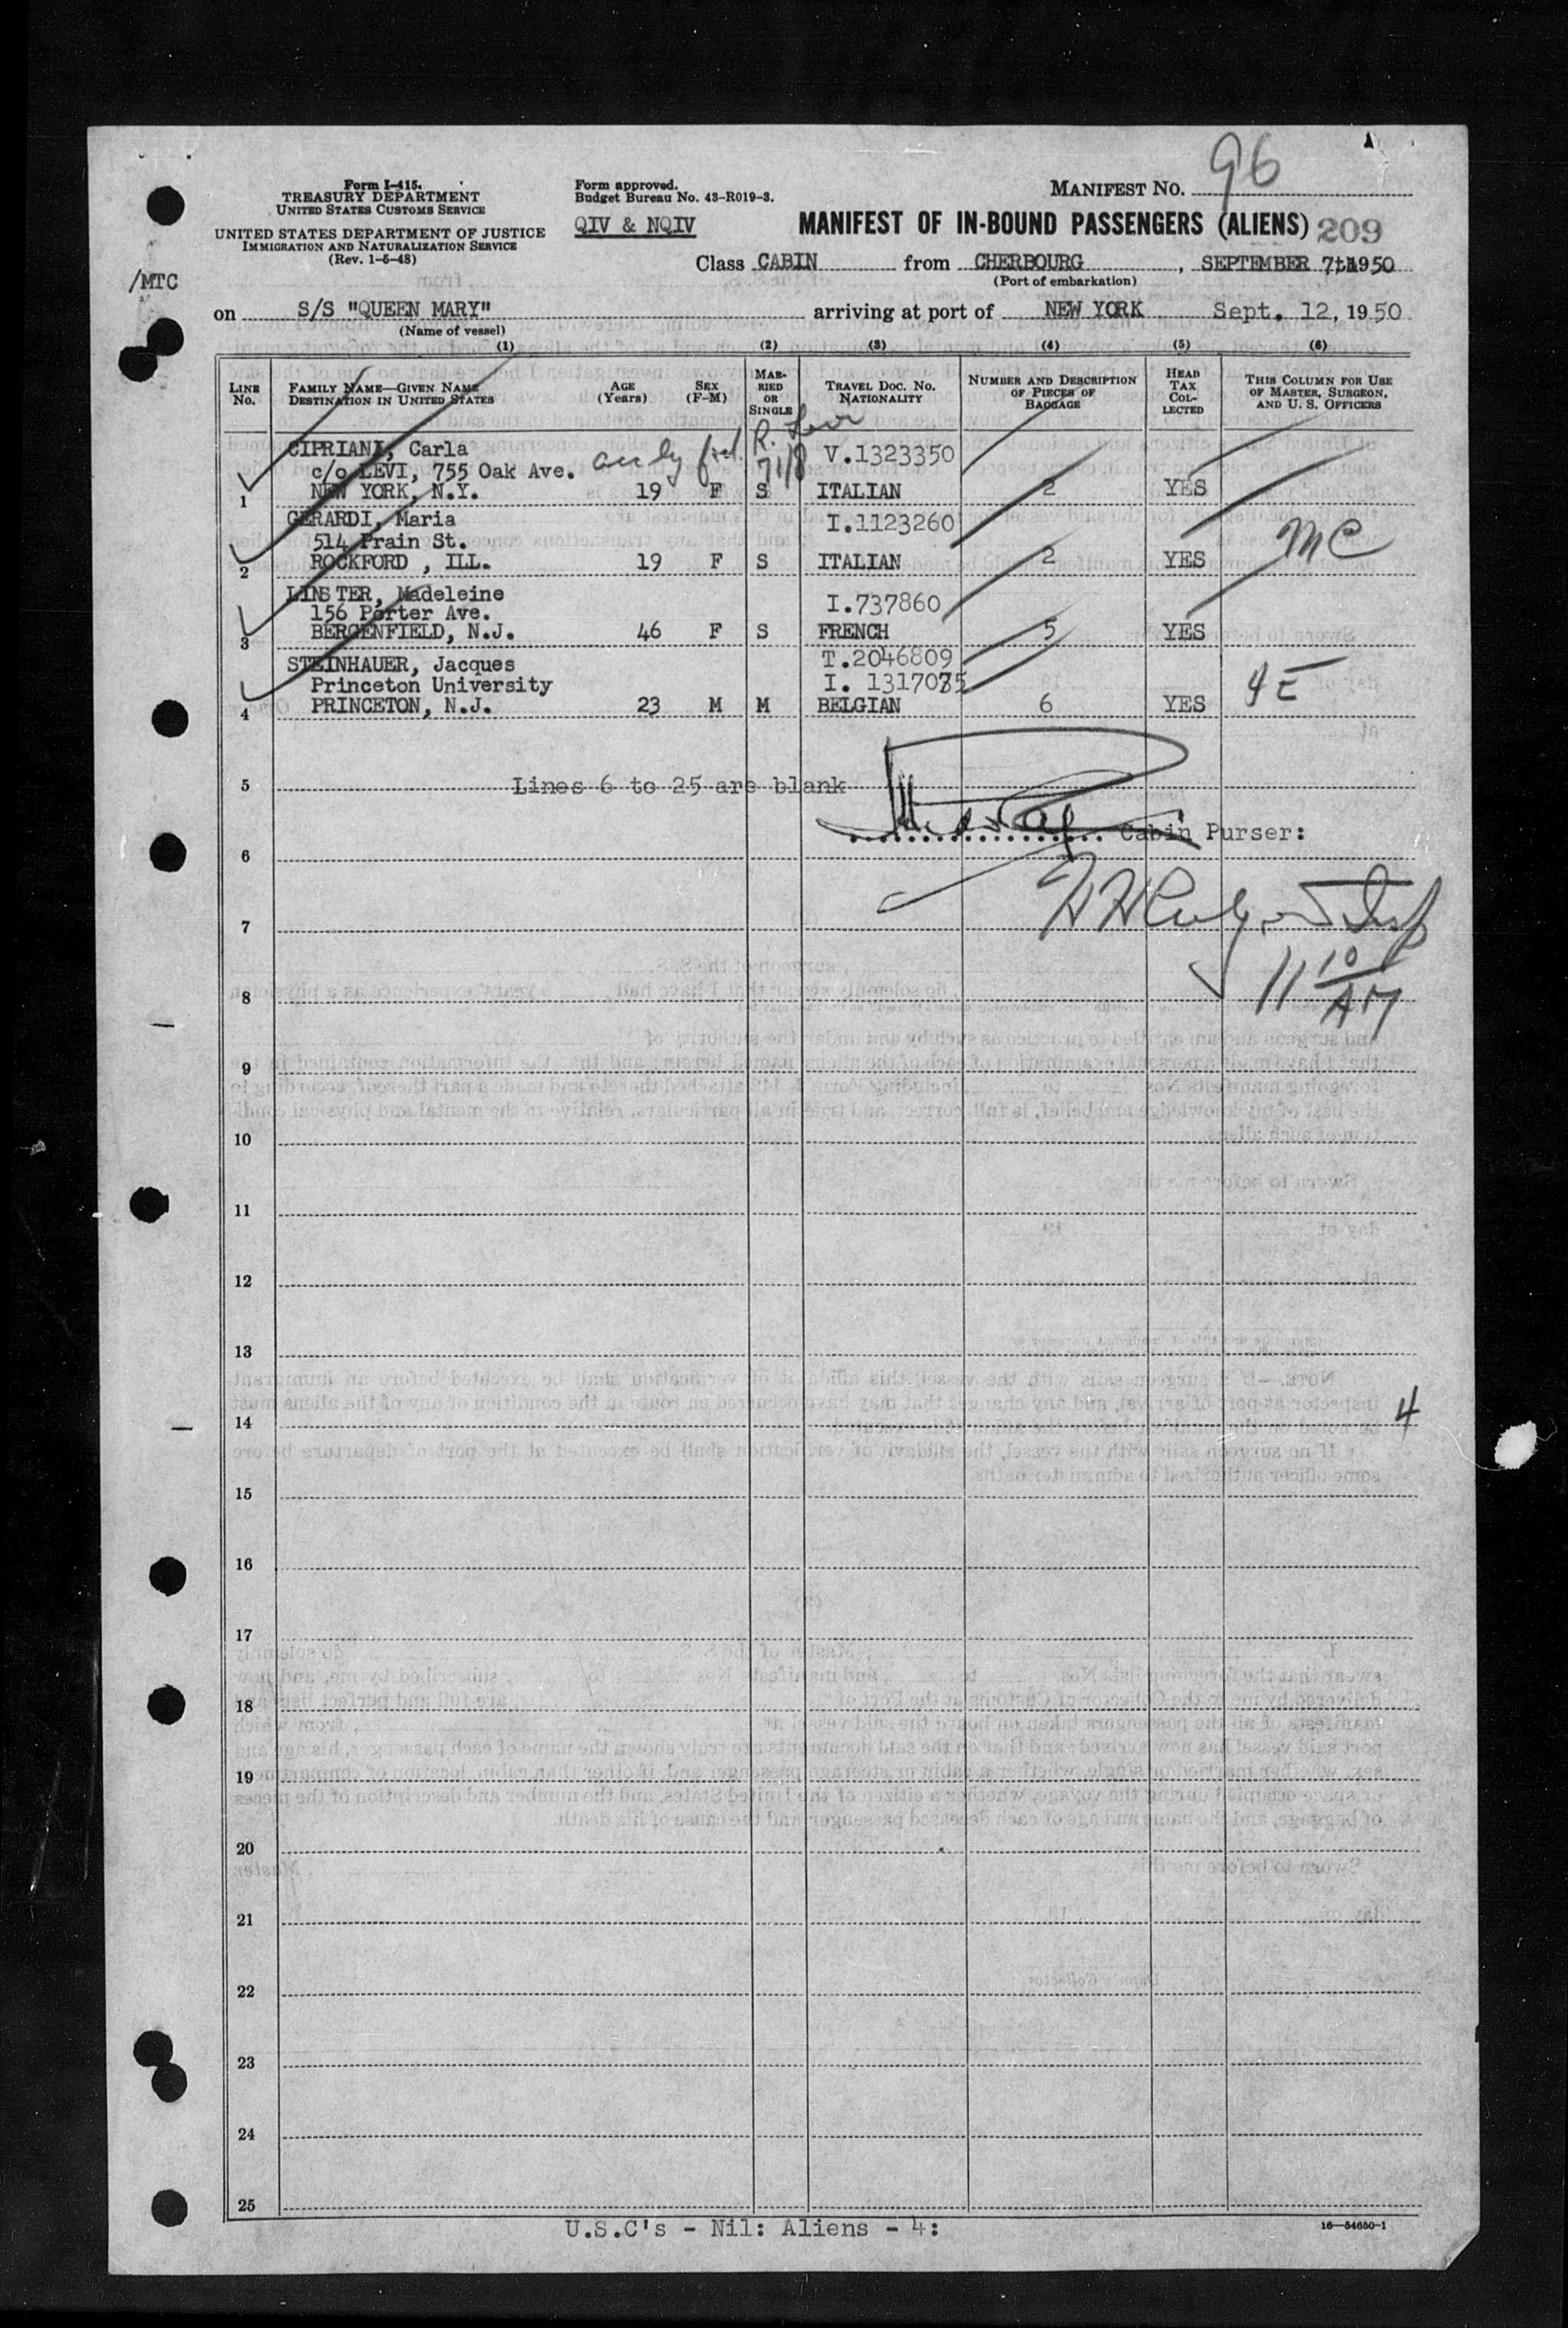 96
Form I-415.
TREASURY DEPARTMENT
UNITED STATES CUSTOMS SERVICE
UNITED STATES DEPARTMENT OF JUSTICE
IMMIGRATION AND NATURALIZATION SERVICE
(Rev. 1-5-48)
Form approved.
Budget Bureau No. 43-R019-3.
QIV & NQIV
MANIFEST NO.
MANIFEST OF IN-BOUND PASSENGERS (ALIENS) 209
/MTC
Class CABIN from CHERBOURG, SEPTEMBER 7th 1950
(Port of embarkation)
on S/S "QUEEN MARY" arriving at port of NEW YORK Sept. 12, 1950
(Name of vessel)
(1) (2) (3) (4) (5) (6)
LINE NO.
FAMILY NAME—GIVEN NAME
DESTINATION IN UNITED STATES
AGE (Years)
SEX (F-M)
MARRIED OR SINGLE
TRAVEL DOC. NO.
NATIONALITY
NUMBER AND DESCRIPTION OF PIECES OF BAGGAGE
HEAD TAX COLLECTED
THIS COLUMN FOR USE OF MASTER, SURGEON, AND U. S. OFFICERS
CIPRIANI, Carla V.1323350
c/o LEVI, 755 Oak Ave.
1 NEW YORK, N.Y. 19 F S ITALIAN 2 YES
GERARDI, Maria I.1123260
514 Prain St. MC
2 ROCKFORD , ILL. 19 F S ITALIAN 2 YES
LINSTER, Madeleine I.737860
156 Porter Ave.
3 BERGENFIELD, N.J. 46 F S FRENCH 5 YES
STEINHAUER, Jacques T.2046809
Princeton University I.
4 PRINCETON, N.J. 23 M M BELGIAN 6 YES
4E
5 Lines 6 to 25 are blank
Cabin Purser:
6
7
11 10 AM
8
9
10
11
12
13
14 4
15
16
17
18
19
20
21
22
23
24
25
U.S.C's - Nil: Aliens - 4:
16—54650-1